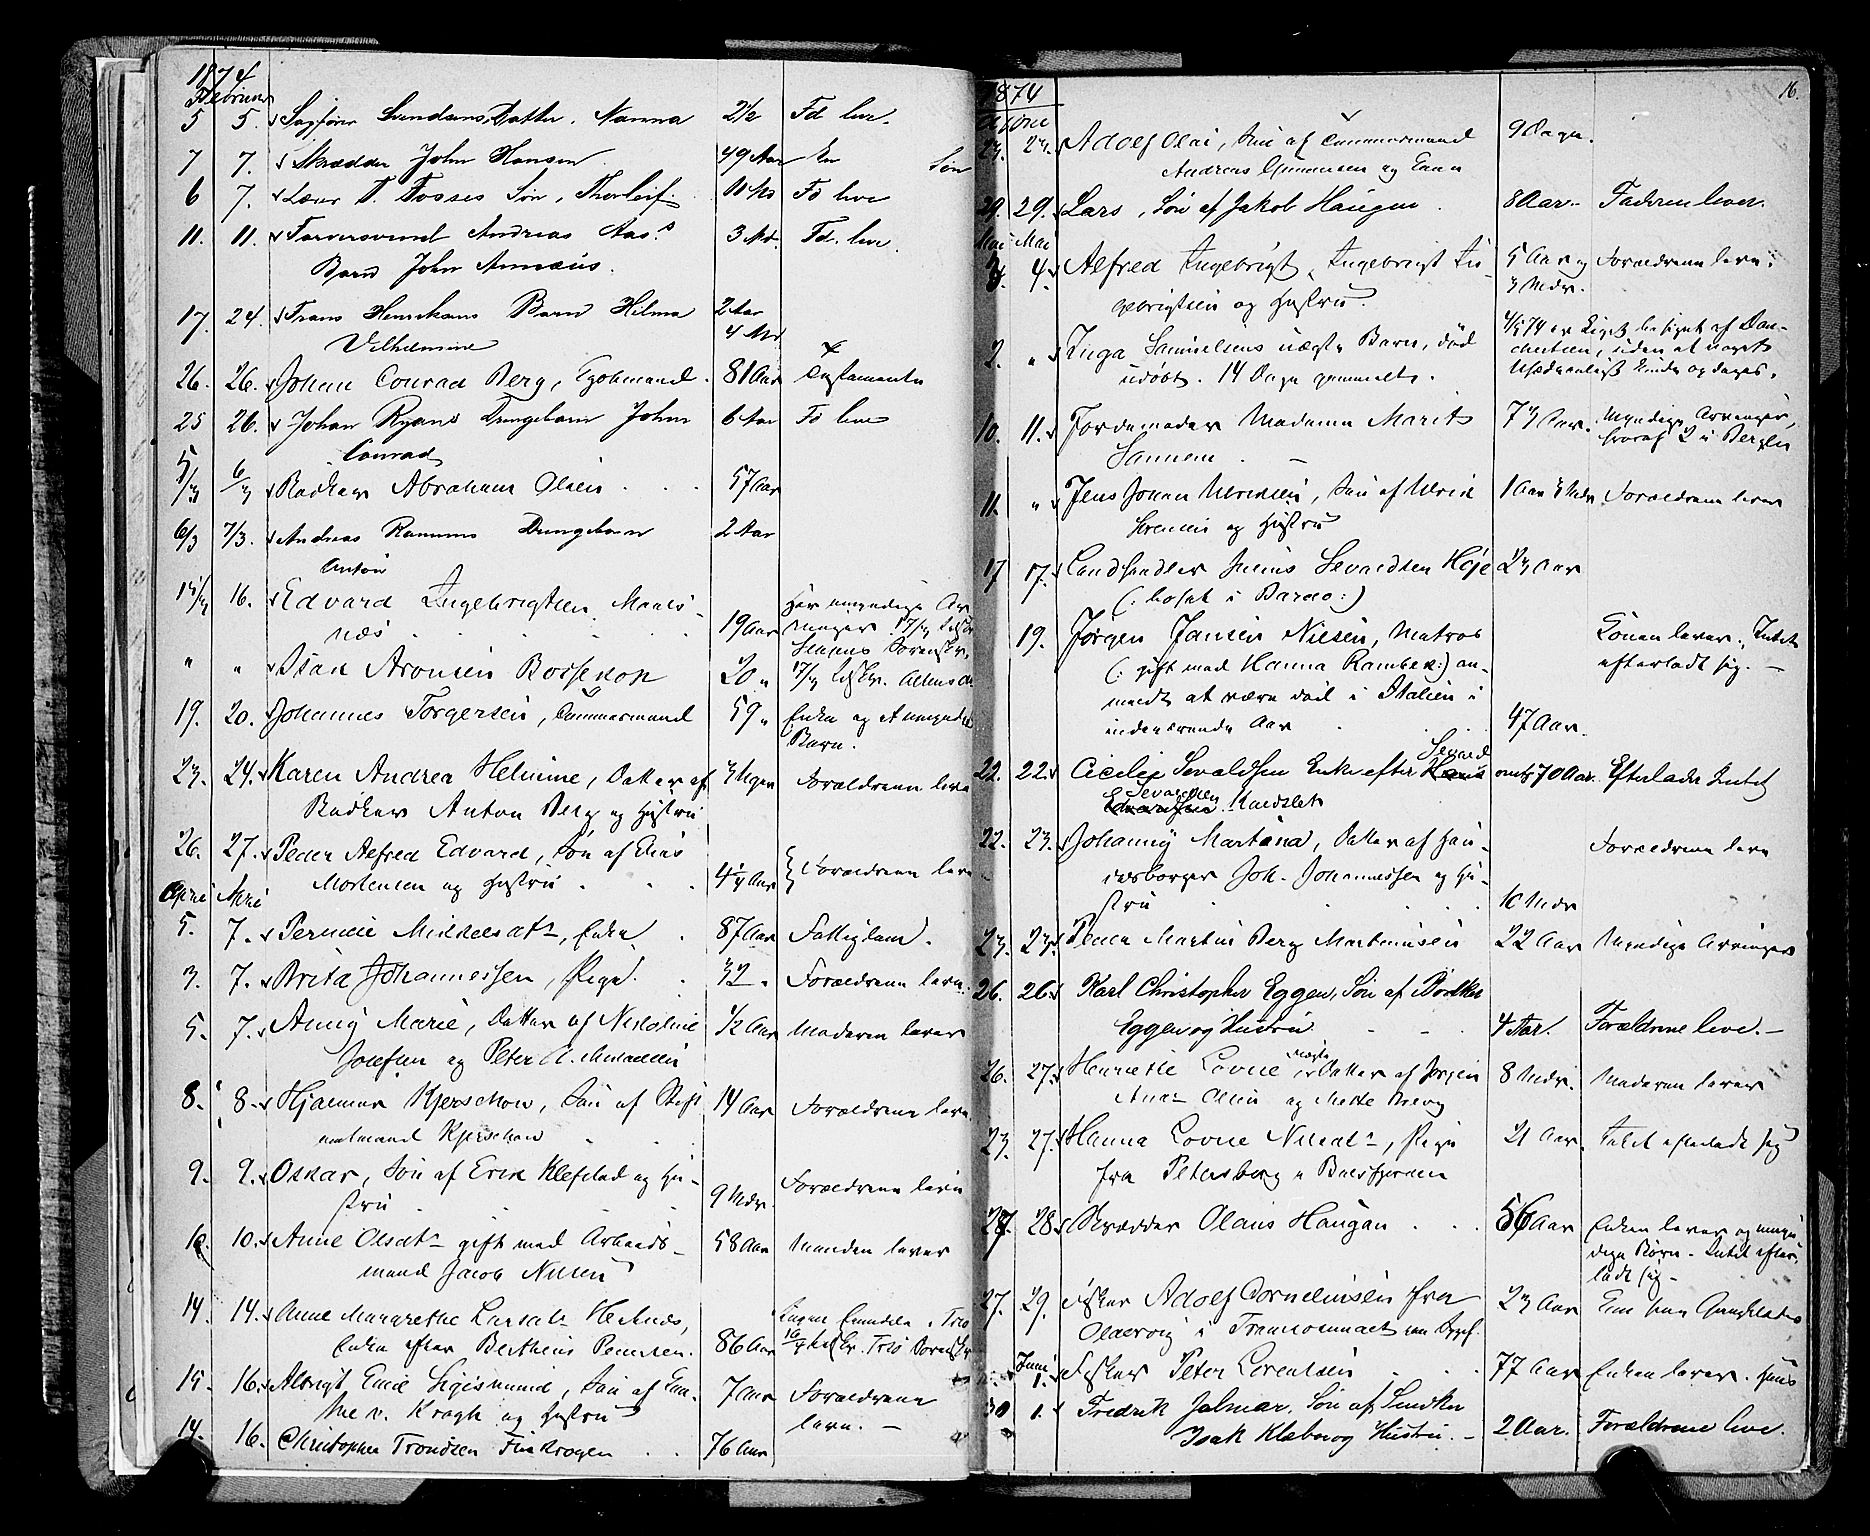 1874
Februar
5 5. Sagfører Svendsens Datter. Nanna 2 1/2 Fd leve.
7 7. Skrædder John Hansen 49 Aar En Søn
6 7. T. Fosses Søn, Thorleif 11 Md Fd leve
11. 11. Andreas Aas.s 3 Md. Fd. leve.
Barn John
17. 24. Frans Henriksens Barn Hilma 2 Aar
Vilhelmine 4 Md
26. 26. Johan Conrad Berg, 81 Aar Testamente
25 26. Johan Ryans Drengebarn Johan 6 Aar Fd leve
Conrad
5/3 6/3 Rødkar Abraham Olsen 57 Aar
6/3 7/3. Andreas Drengebarn 2 Aar
Anton
14/3 16. Edvard Ingebrigtsen 19 Aar Har myndige
næs
" " Isak Aronsen Bossekop 20 "
19. 20. Johannes Torgersen, Tømmermand 59 " Enke og et umyndigt
Barn.
23. 24. Karen Andrea Helmine, Datter af 3 Uger Forældrene leve
Anton Berg og Hustru
26. 27. Peder Alfred Edvard, Søn af Elias
Mortensen og Hustru 4 1/4 Aar Forældrene leve
April April
5. 7. Pernille Mikkelsdtr, Enke 87 Aar Fattiglem.
3. 7. Brita Johannessen, Pige 32 " Forældrene leve.
5. 7. Anny Marie, Datter af Nikoline 1/2 Aar Moderen lever
Josefsen og Peter A. Amundsen
8. 8. Hjalmar Kjerschow, Søn af Stift- 14 Aar Forældrene leve
amtmand Kjerschow
9. 9. Oskar, Søn af Erik Klefstad og Hu-
stru 9 Mdr. Forældrene leve
10. 10. Anne Olsdtr gift med Arbeids- 58 Aar Manden lever
mand Jacob Nilsen
14. 14. Anne Margrethe Larsdtr
Enke efter Berthius Pedersen. 86 Aar
15. 16. Albrigt Emil Sigismund, Søn af 7 Aar Forældrene
v. Krogh og Hustru leve. —
14. 16. Christopher Trondsen Finkrogen 76 Aar
1874 16.
April
23. 23. Adolf Olai, Søn af Tømmermand 9 Dage.
Andreas og
29. 29. Lars, Søn af Jakob Haugen 8 Aar. Faderen lever.
Mai Mai
3. 4. Alfred Ingebrigt, Ingebrigt In- 5 Aar og Forældrene leve.
gebrigtsen og Hustru. 3 Mdr.
2. " Inga Samuelsens uægte Barn, død 4/5 74 er Liget besigtet af Doc-
udøbt. 14 Dage gammelt. uden at noget
Usædvanligt opdages.
10. 11. Jordemoder Madame Marit 73 Aar. Myndige Arvinger,
Sannem hvoraf 2 i Bergen
11. " Jens Johan Ulriksen, Søn af Ulrik 1 Aar 3 Mdr Forældrene leve
Sørensen og Hustru
17 17. Landhandler Julius Sevaldsen Høje 23 Aar
(: bosat i :)
19. Jørgen Jansen Nilsen, Matros Konen lever. Intet
(: gift med Hanna :) an- efterladt sig. —
meldt at være død i Italien i
indeværende Aar 47 Aar.
22. 22. Cecilie Sevaldsen Enke efter Hans Sevald omtr 70 Aar. Efterlader Intet
Sevaldsen Kvedslet
22. 23. Johanny Martina, Datter af Han- Forældrene leve
delsborger Joh. Johannessen og Hu-
stru 10 Mdr
23. 23. Martin Berg Martinusen 22 Aar Myndige Arvinger
26. 26. Karl Christopher Eggen, Søn af Bødker
Eggen og Hustru 4 Aar. Forældrene leve. —
26. 27. Henriette Lovise, uægte Datter af Jørgen 8 Mdr. Moderen lever
Olsen og Mette
23. 27. Hanna Lovise Nilsdtr, Pige 21 Aar. Intet efterladt sig
fra Petersborg i Balsfjorden
27. 28. Skrædder Olaus Haugan 56 Aar Enken lever og myn-
dige Børn. Intet efter-
ladt sig —
27. 29. Fisker Adolf Corneliussen fra 23 Aar
i
Juni
1. Fisker Peter Lorentsen 77 Aar Enken lever.
30 1. Fredrik Jalmar, Søn af Snedker
Isak Klæbo og Hustru. — 2 Aar. Forældrene leve.